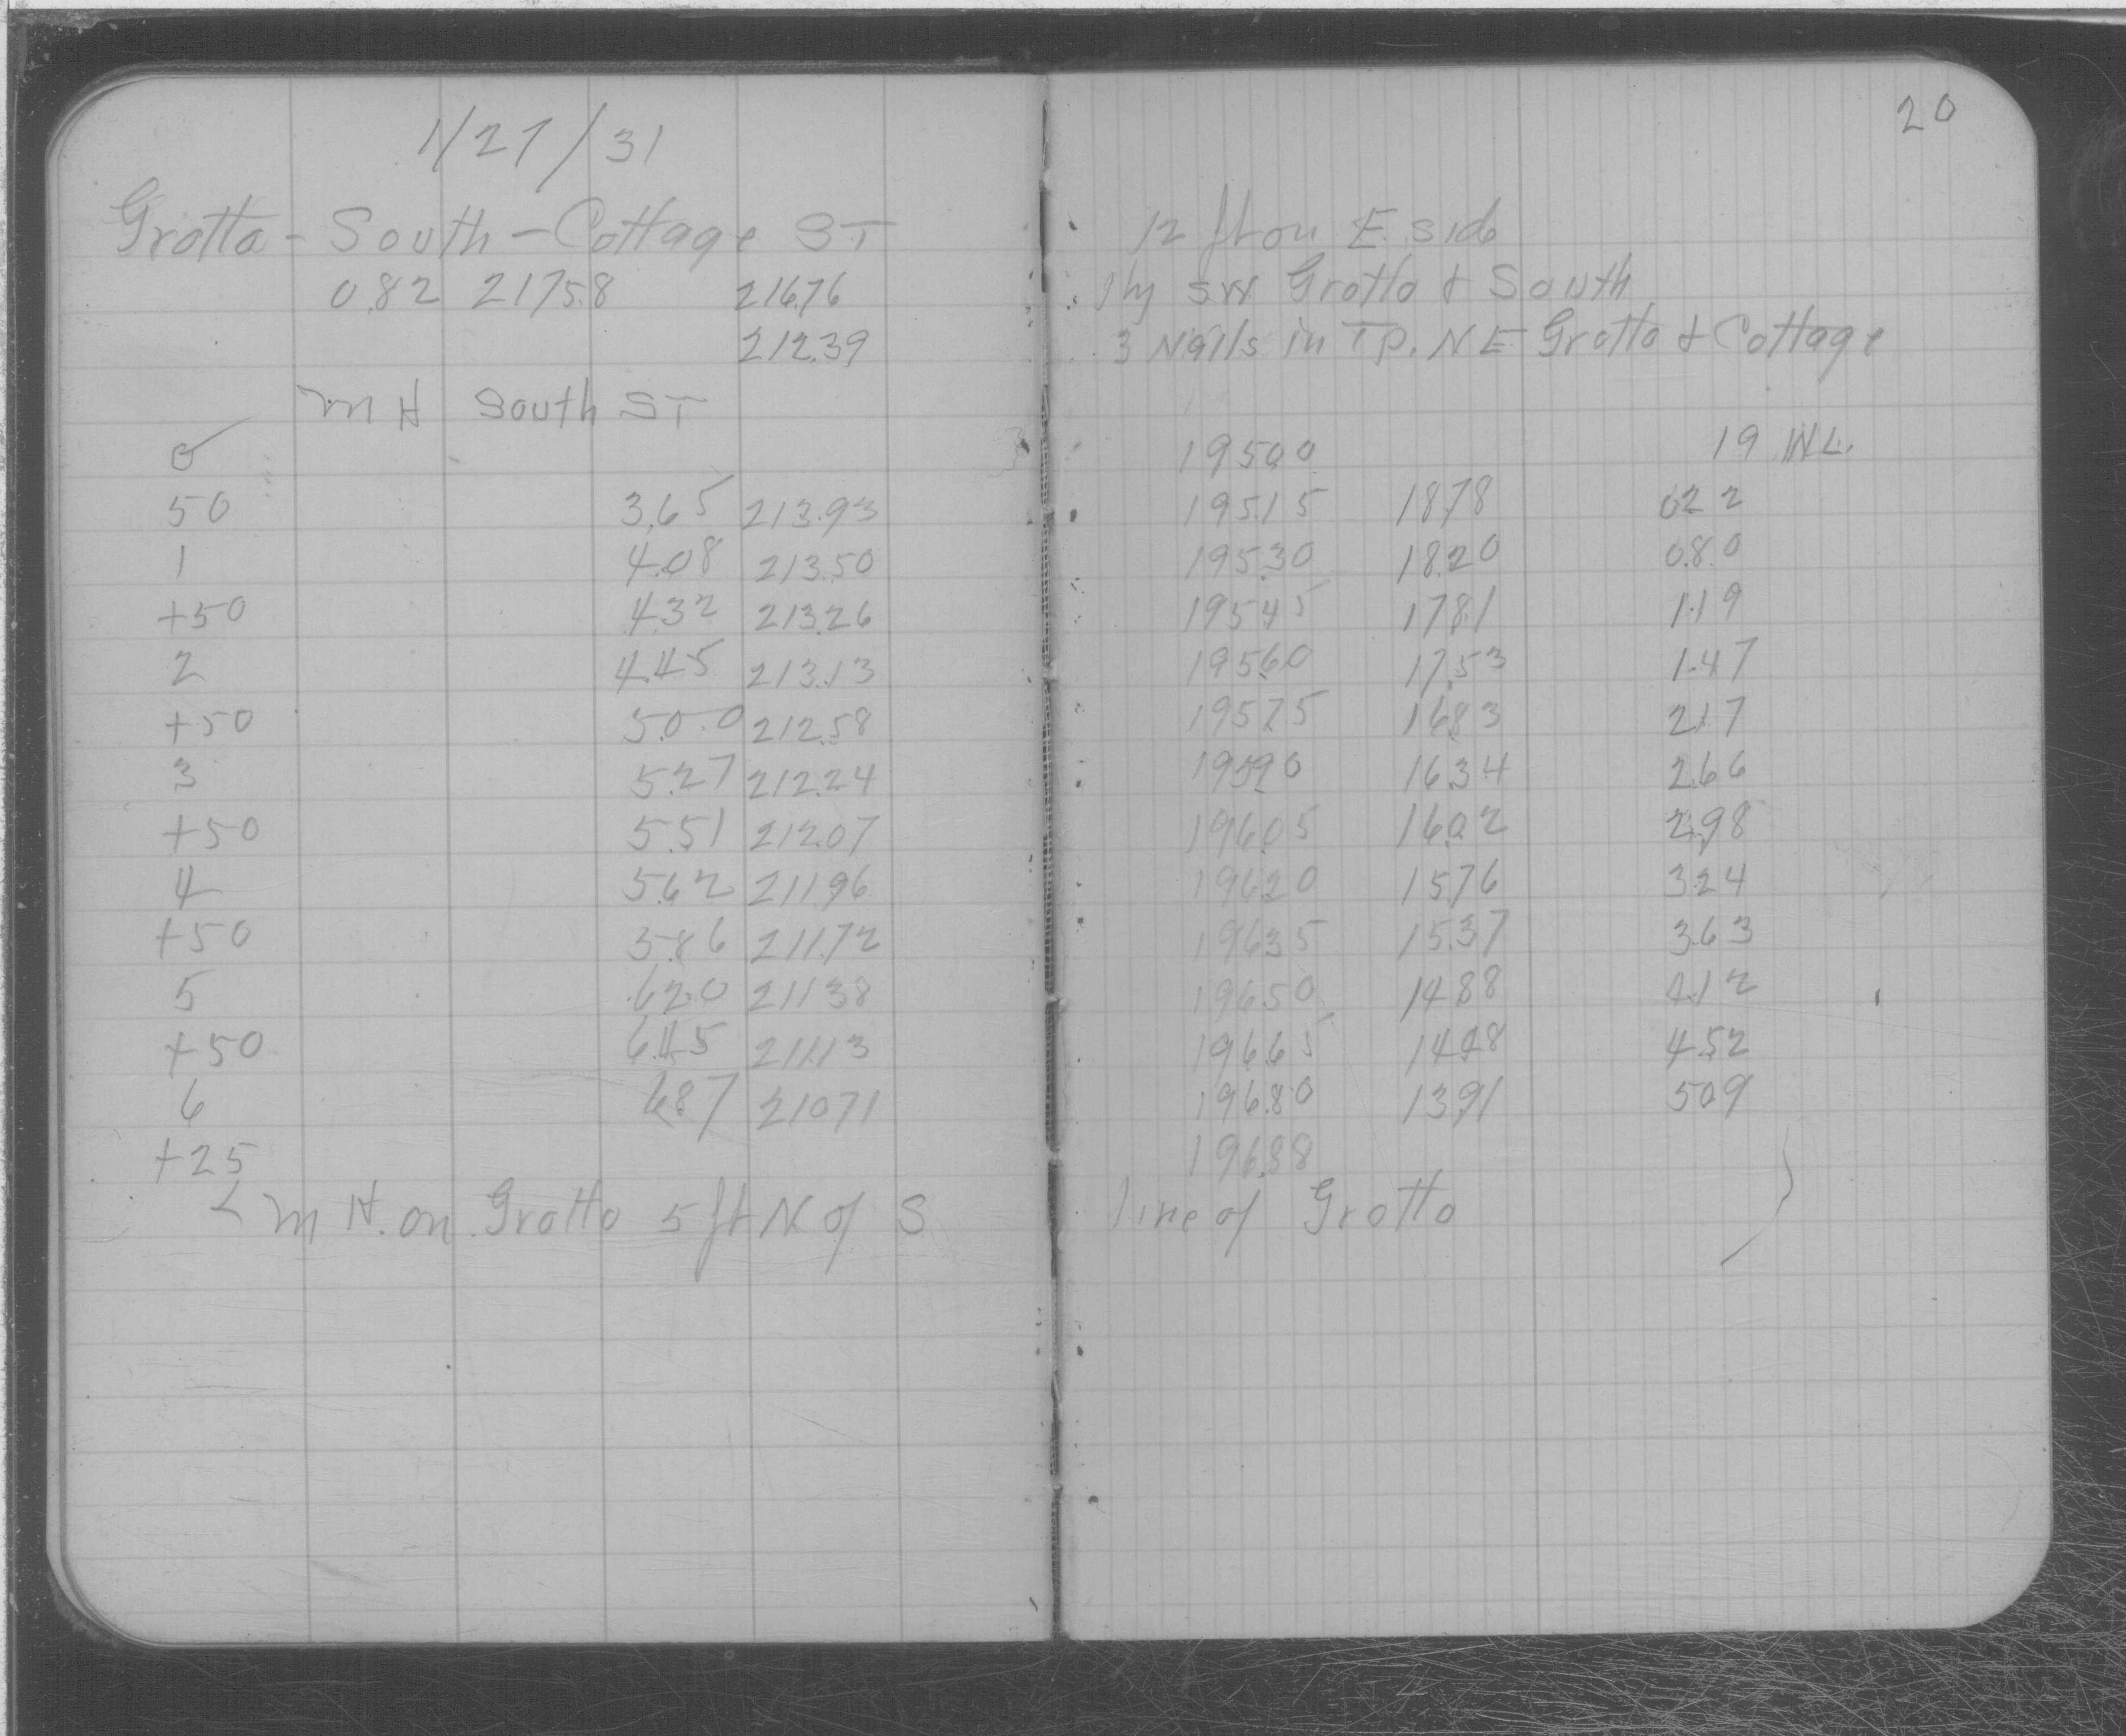 20
1/27/31
Grotto - South - Cottage ST 12 ft on E. side
0.82 217.58 216.76 Hy SW Grotto & South
212.39 3 Nails in TP. NE Grotto & Cottage
MH South ST
0 195.00 19 WL.
50 3.65 213.93 195.15 18.78 0.22
1 4.08 213.50 195.30 18.20 0.80
+50 4.32 213.26 195.45 17.81 1.19
2 4.45 213.13 195.60 17.53 1.47
+50 5.00 212.58 195.75 16.83 2.17
3 5.27 212.24 195.90 16.34 2.66
+50 5.51 212.07 196.05 16.02 2.98
4 5.62 211.96 196.20 15.76 3.24
+50 5.86 211.72 196.35 15.37 3.63
5 6.20 211.38 196.50 14.88 4.12
+50 6.45 211.13 196.65 14.48 4.52
6 6.87 210.71 196.80 13.91 5.09
+25 196.88
< MH. on Grotto 5 ft N of S line of Grotto